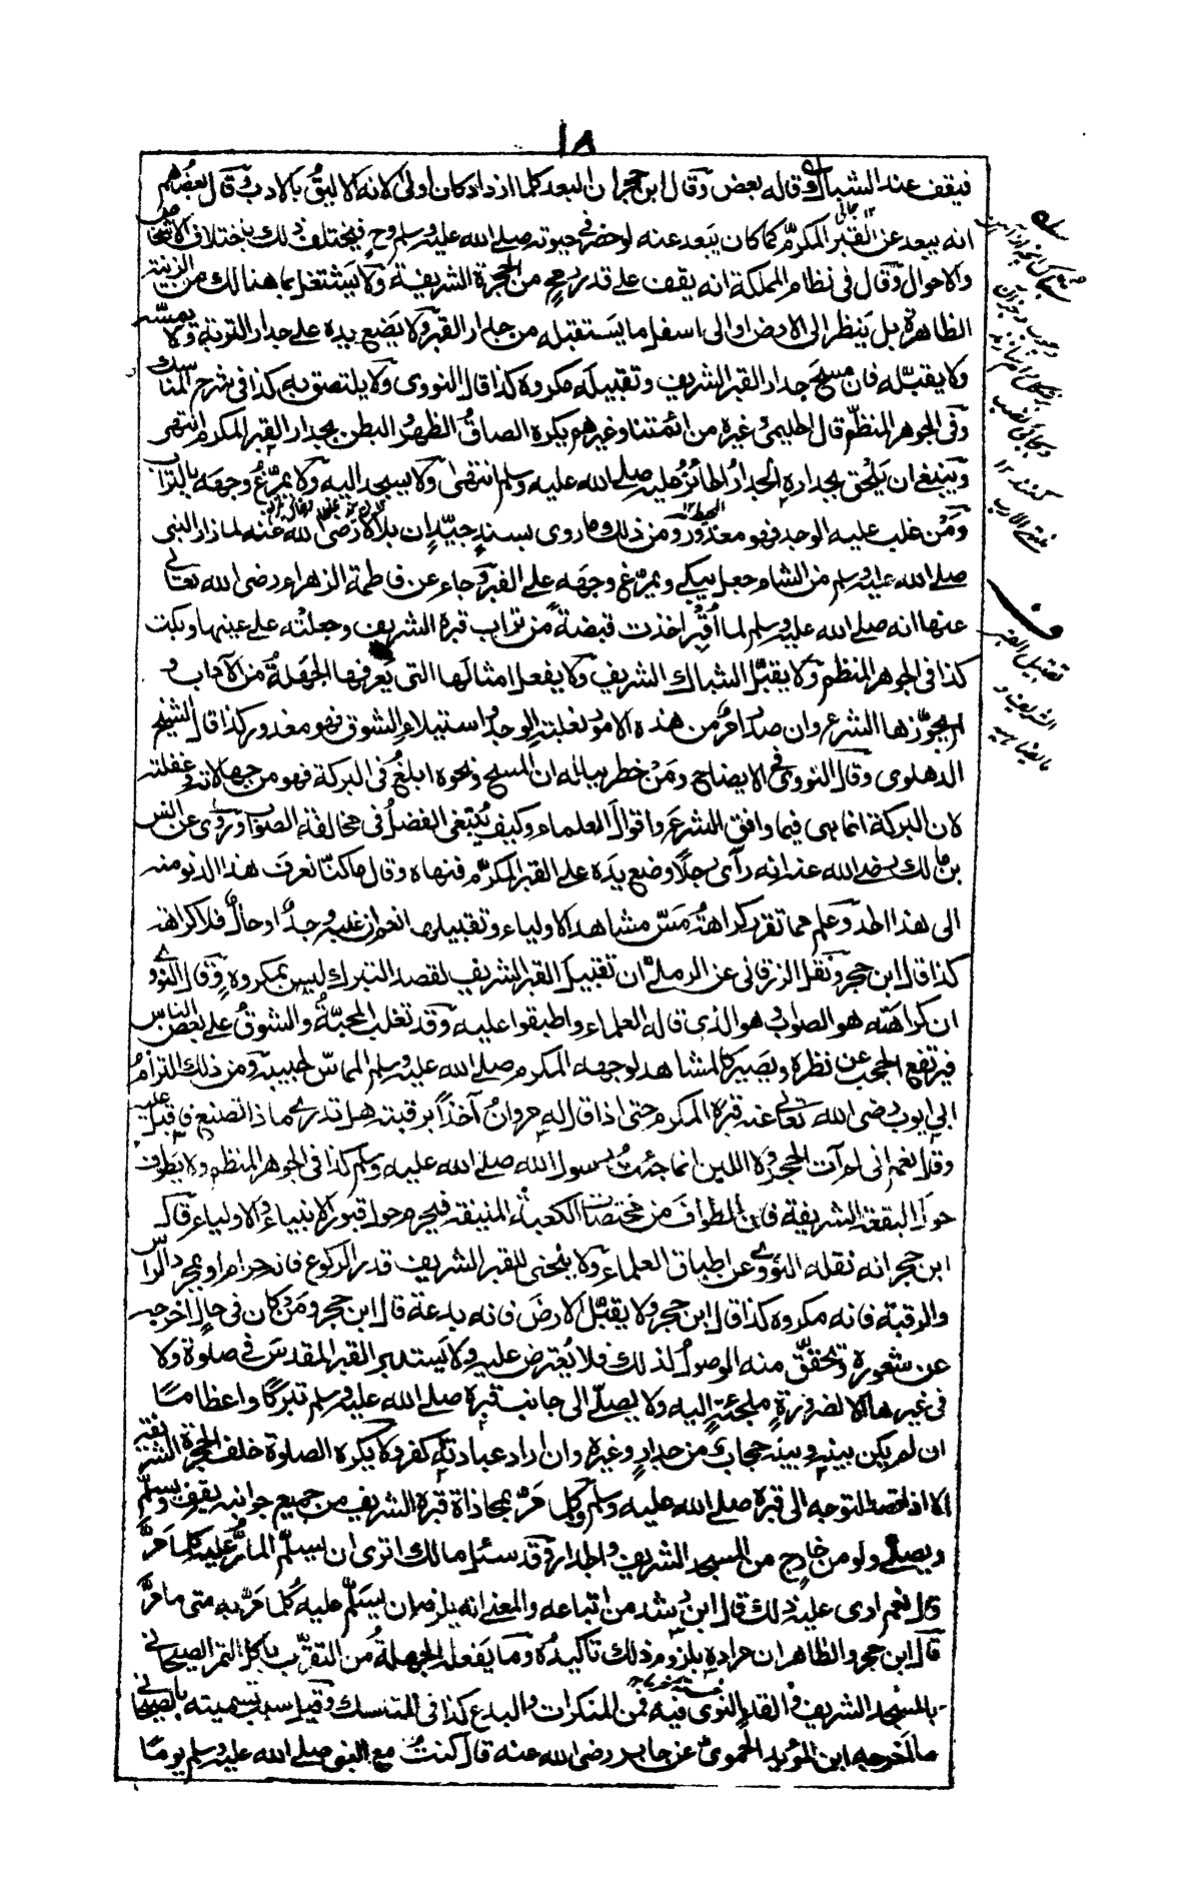 ١٥
فيقف عند الشباك وقاله بعض وقال ابن حجر ان البعد كلما ازداد كان اولى لانه الاليق بالادب وقال بعضهم
انه يبعد عن القبر المكرم كما كان يبعد عنه لو حضر في حيوته صلى الله عليه وسلم وح فيختلف ذلك باختلاف الاشخاص
والاحوال وقال في نظام المملكة انه يقف على قدر رمح من الحجرة الشريفة ولا يشتغل بما هنالك من الزينة
الظاهرة بل ينظر الى الارض او الى اسفل ما يستقبله من جدار القبر ولا يضع يده على جدار التربة ولا يمسه
ولا يقبله فان مسح جدار القبر الشريف وتقبيله مكروه كذا قال النووي ولا يلتصق به كذا في شرح المناسك
وفي الجوهر المنظم قال الحليمي وغيره من ائمتنا وغيرهم يكره الصاق الظهر والبطن بجدار القبر المكرم انتهى
وينبغي ان يلحق بجداره الجدار الحائز عليه صلى الله عليه وسلم انتهى ولا يسجد اليه ولا يمرغ وجهه بالتراب
ومن غلب عليه الوجد فهو معذور ومن ذلك ما روي بسند جيد ان بلالا رضى الله عنه لما زار النبي
صلى الله عليه وسلم من الشام جعل يبكي ويمرغ وجهه على القبر وجاء عن فاطمة الزهراء رضى الله تعالى
عنها انه صلى الله عليه وسلم لما اقبر اخذت قبضة من تراب قبره الشريف وجعلته على عينها وبكت
كذا في الجوهر المنظم ولا يقبل الشباك الشريف ولا يفعل امثالها التي يعرفها الجهلة من الآداب و
لم يجوزها الشرع وان صدر امر من هذه الامور لغلبة الوجد واستيلاء الشوق فهو معذور كذا قال الشيخ
الدهلوي وقال النووي في الايضاح ومن خطر بباله ان المسح ونحوه ابلغ في البركة فهو من جهالته وغفلته
لان البركة انما هي فيما وافق الشرع واقوال العلماء وكيف يبتغى الفضل في مخالفة الصواب وروي عن انس
بن مالك رضى الله عنه انه رأى رجلا وضع يده على القبر المكرم فنهاه وقال ما كنا نعرف هذا الدنو منه
الى هذا الحد وعلم مما تقرر كراهة مس مشاهد الاولياء وتقبيلها نعم ان غلبه وجد او حال فلا كراهة
كذا قال ابن حجر ونقل الزرقاني عن الرملي ان تقبيل القبر الشريف لقصد التبرك ليس بمكروه وقال النووي
ان كراهته هو الصواب وهو الذي قاله العلماء واطبقوا عليه وقد تغلب المحبة والشوق على بعض الناس
فيرتفع الحجب عن نظره ويصير كالمشاهد لوجهه المكرم صلى الله عليه وسلم المماس لحبيبه ومن ذلك التزام
ابي ايوب رضى الله تعالى عنه قبره المكرم حتى اذا قال له مروان آخذا برقبته هل تدري ماذا تصنع فاقبل عليه
وقال نعم اني لم آت الحجر ولا اللبن انما جئت رسول الله صلى الله عليه وسلم كذا في الجوهر المنظم ولا يطوف
حول البقعة الشريفة فان الطواف من مختصات الكعبة المنيفة فيحرم حول قبور الانبياء والاولياء قال
ابن حجر انه نقله النووي عن اطباق العلماء ولا ينحني للقبر الشريف قدر الركوع فانه حرام او بمجرد الراس
والرقبة فانه مكروه كذا قال ابن حجر ولا يقبل الارض فانه بدعة قال ابن حجر ومن كان في حال اخرجه
عن شعوره وتحقق منه الوصول لذلك فلا يعترض عليه ولا يستدبر القبر المقدس في صلوة ولا
في غيرها الا لضرورة ملجئة اليه ولا يصلي الى جانب قبره صلى الله عليه وسلم تبركا واعظاما
ان لم يكن بينه وبينه حجاب من جدار وغيره وان اراد عبادته كفر ولا يكره الصلوة خلف الحجرة الشريفة
الا اذا قصد التوجه الى قبره صلى الله عليه وسلم وكل مر بمحاذاة قبره الشريف من جميع جوانبه يقف ويسلم
ويصلي ولو من خارج من المسجد الشريف والجدار وقد سئل مالك اترى ان يسلم المار عليه كلما مر
قال نعم ارى عليه ذلك قال ابن رشد من اتباعه والمعنى انه يلزمه ان يسلم عليه كلما مر به متى ما مر
قال ابن حجر والظاهر ان مراده بلزوم ذلك تأكيده وما يفعله الجهلة من التقرب بأكل التمر الصيحاني
بالمسجد الشريف والقاء النوى فيه فمن المنكرات والبدع كذا في المتنسك وقيل سبب تسميته بالصيحاني
ما اخرجه ابن المؤيد الحموي عن جابر رضى الله عنه قال كنت مع النبي صلى الله عليه وسلم يوما
ف
تقبيل القبر
الشريف و